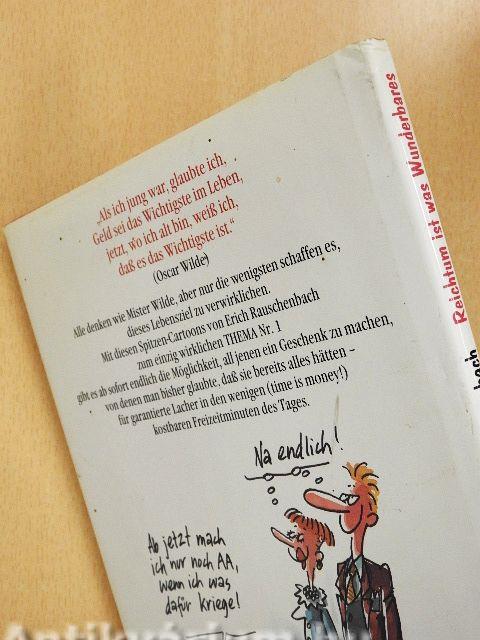 „Als ich jung war, glaubte ich,
Geld sei das Wichtigste im Leben,
jetzt, wo ich alt bin, weiß ich,
daß es das Wichtigste ist.“
(Oscar Wilde)
Alle denken wie Mister Wilde, aber nur die wenigsten schaffen es,
dieses Lebensziel zu verwirklichen.
Mit diesen Spitzen-Cartoons von Erich Rauschenbach
zum einzig wirklichen THEMA Nr. 1
gibt es ab sofort endlich die Möglichkeit, all jenen ein Geschenk zu machen,
von denen man bisher glaubte, daß sie bereits alles hätten –
für garantierte Lacher in den wenigen (time is money!)
kostbaren Freizeitminuten des Tages.
Na endlich!
Ab jetzt mach
ich nur noch AA,
wenn ich was
dafür kriege!
Reichtum ist was Wunderbares
bach